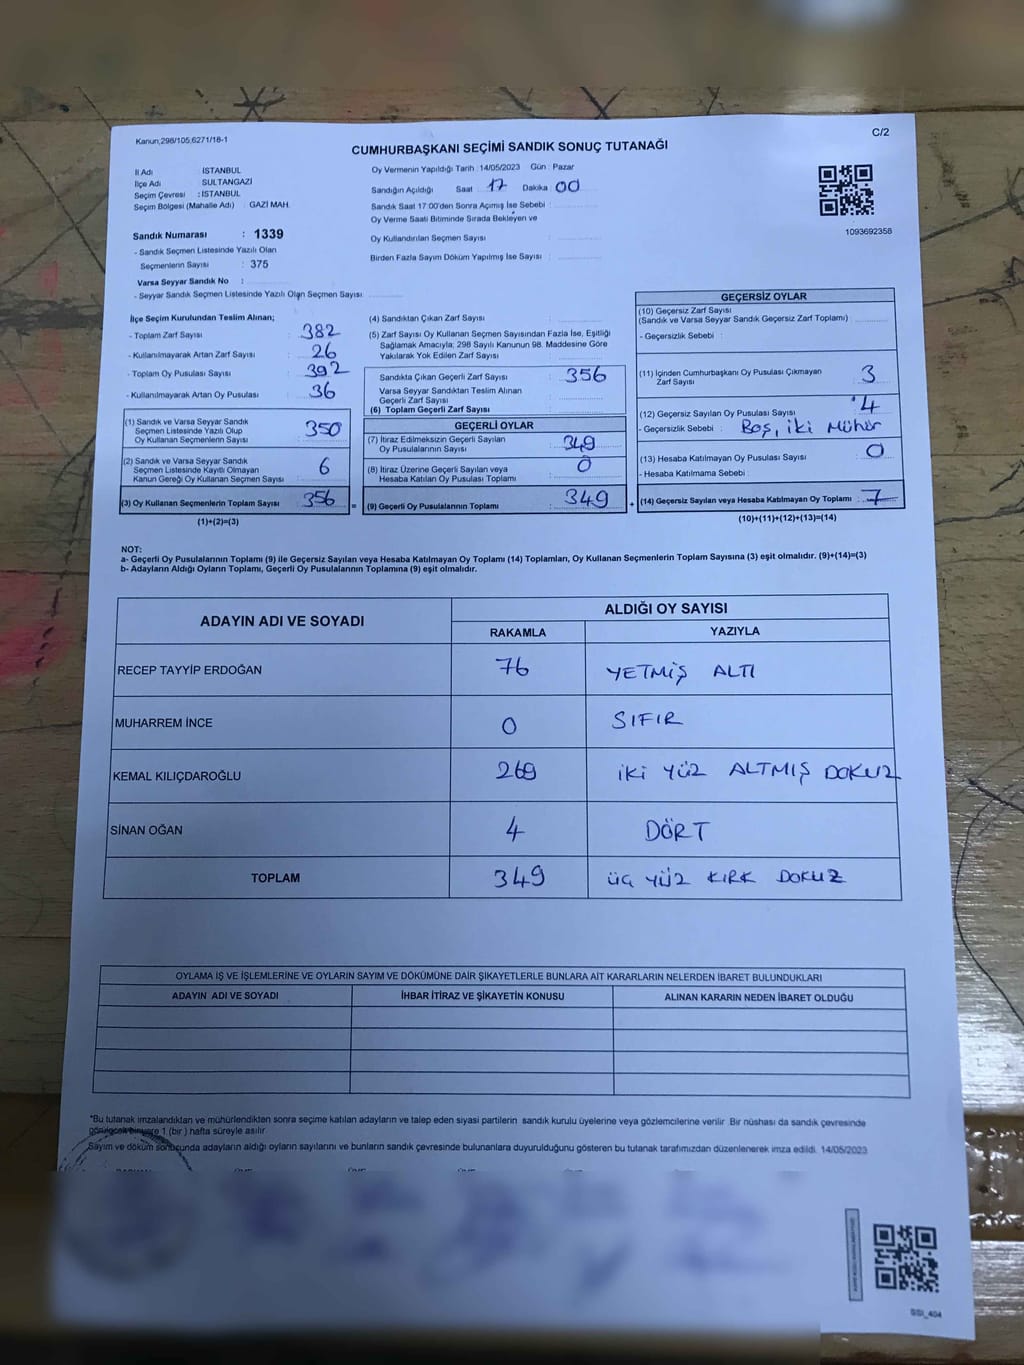 Kanun,298/105,6271/18-1
C/2
CUMHURBAŞKANI SEÇİMİ SANDIK SONUÇ TUTANAĞI
İl Adı : İSTANBUL
İlçe Adı : SULTANGAZİ
Seçim Çevresi : İSTANBUL
Seçim Bölgesi (Mahalle Adı) : GAZİ MAH.
Sandık Numarası : 1339
- Sandık Seçmen Listesinde Yazılı Olan
Seçmenlerin Sayısı : 375
Varsa Seyyar Sandık No :
- Seyyar Sandık Seçmen Listesinde Yazılı Olan Seçmen Sayısı
Oy Vermenin Yapıldığı Tarih : 14/05/2023 Gün : Pazar
Sandığın Açıldığı Saat 17 Dakika 00
Sandık Saat 17:00'den Sonra Açımış İse Sebebi :
Oy Verme Saati Bitiminde Sırada Bekleyen ve
Oy Kullandırılan Seçmen Sayısı :
Birden Fazla Sayım Döküm Yapılmış İse Sayısı :
1093692358
İlçe Seçim Kurulundan Teslim Alınan;
- Toplam Zarf Sayısı : 382
- Kullanılmayarak Artan Zarf Sayısı : 26
- Toplam Oy Pusulası Sayısı : 392
- Kullanılmayarak Artan Oy Pusulası : 36
(1) Sandık ve Varsa Seyyar Sandık
Seçmen Listesinde Yazılı Olup
Oy Kullanan Seçmenlerin Sayısı : 350
(2) Sandık ve Varsa Seyyar Sandık
Seçmen Listesinde Kayıtlı Olmayan
Kanun Gereği Oy Kullanan Seçmen Sayısı : 6
(3) Oy Kullanan Seçmenlerin Toplam Sayısı : 356
(1)+(2)=(3)
(4) Sandıktan Çıkan Zarf Sayısı :
(5) Zarf Sayısı Oy Kullanan Seçmen Sayısından Fazla İse, Eşitliği
Sağlamak Amacıyla; 298 Sayılı Kanunun 98. Maddesine Göre
Yakılarak Yok Edilen Zarf Sayısı :
Sandıkta Çıkan Geçerli Zarf Sayısı : 356
Varsa Seyyar Sandıktan Teslim Alınan
Geçerli Zarf Sayısı :
(6) Toplam Geçerli Zarf Sayısı :
GEÇERLİ OYLAR
(7) İtiraz Edilmeksizin Geçerli Sayılan
Oy Pusulalarının Sayısı : 349
(8) İtiraz Üzerine Geçerli Sayılan veya
Hesaba Katılan Oy Pusulası Toplamı : 0
= (9) Geçerli Oy Pusulalarının Toplamı : 349
GEÇERSİZ OYLAR
(10) Geçersiz Zarf Sayısı
(Sandık ve Varsa Seyyar Sandık Geçersiz Zarf Toplamı)
- Geçersizlik Sebebi :
(11) İçinden Cumhurbaşkanı Oy Pusulası Çıkmayan
Zarf Sayısı : 3
(12) Geçersiz Sayılan Oy Pusulası Sayısı : 4
- Geçersizlik Sebebi : Boş, iki Mühür
(13) Hesaba Katılmayan Oy Pusulası Sayısı : 0
- Hesaba Katılmama Sebebi :
+ (14) Geçersiz Sayılan veya Hesaba Katılmayan Oy Toplamı : 7
(10)+(11)+(12)+(13)=(14)
NOT:
a- Geçerli Oy Pusulalarının Toplamı (9) ile Geçersiz Sayılan veya Hesaba Katılmayan Oy Toplamı (14) Toplamları, Oy Kullanan Seçmenlerin Toplam Sayısına (3) eşit olmalıdır. (9)+(14)=(3)
b- Adayların Aldığı Oyların Toplamı, Geçerli Oy Pusulalarının Toplamına (9) eşit olmalıdır.
ADAYIN ADI VE SOYADI
ALDIĞI OY SAYISI
RAKAMLA YAZIYLA
RECEP TAYYİP ERDOĞAN 76 YETMİŞ ALTI
MUHARREM İNCE 0 SIFIR
KEMAL KILIÇDAROĞLU 269 iki YÜZ ALTMIŞ DOKUZ
SİNAN OĞAN 4 DÖRT
TOPLAM 349 ÜÇ YÜZ KIRK DOKUZ
OYLAMA İŞ VE İŞLEMLERİNE VE OYLARIN SAYIM VE DÖKÜMÜNE DAİR ŞİKAYETLERLE BUNLARA AİT KARARLARIN NELERDEN İBARET BULUNDUKLARI
ADAYIN ADI VE SOYADI İHBAR İTİRAZ VE ŞİKAYETİN KONUSU ALINAN KARARIN NEDEN İBARET OLDUĞU
*Bu tutanak imzalandıktan ve mühürlendikten sonra seçime katılan adayların ve talep eden siyasi partilerin sandık kurulu üyelerine veya gözlemcilerine verilir. Bir nüshası da sandık çevresinde
görülecek bir yere 1 (bir ) hafta süreyle asılır.
Sayım ve döküm sonucunda adayların aldığı oyların sayılarını ve bunların sandık çevresinde bulunanlara duyurulduğunu gösteren bu tutanak tarafımızdan düzenlenerek imza edildi. 14/05/2023
SSI_404